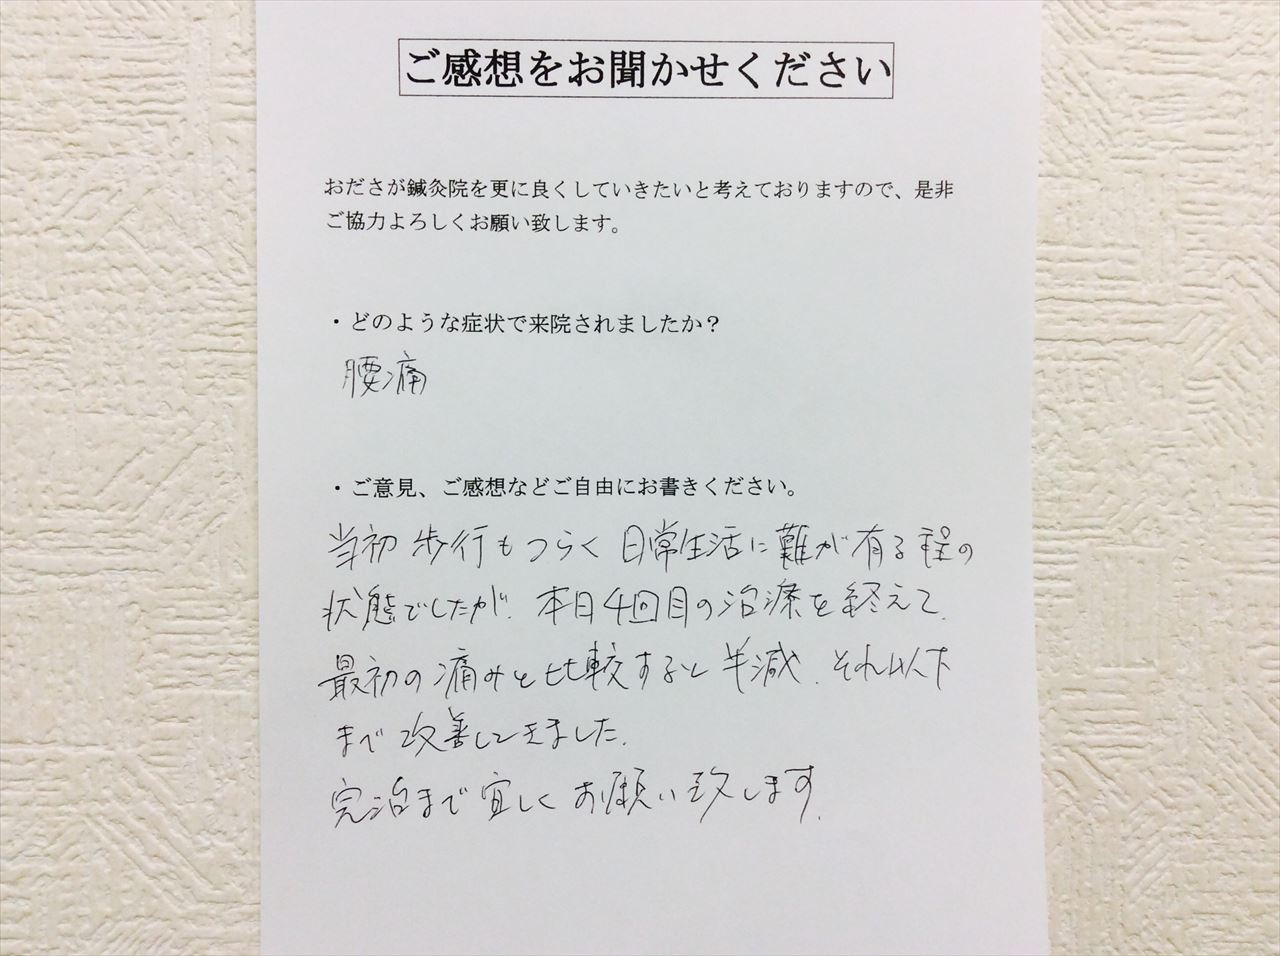 ご感想をお聞かせください
おださが鍼灸院を更に良くしていきたいと考えておりますので、是非
ご協力よろしくお願い致します。
・どのような症状で来院されましたか？
腰痛
・ご意見、ご感想などご自由にお書きください。
当初 歩行もつらく 日常生活に難が有る程の
状態でしたが、本日4回目の治療を終えて、
最初の痛みと比較すると半減、それ以下
まで改善してきました。
完治まで宜しくお願い致します。